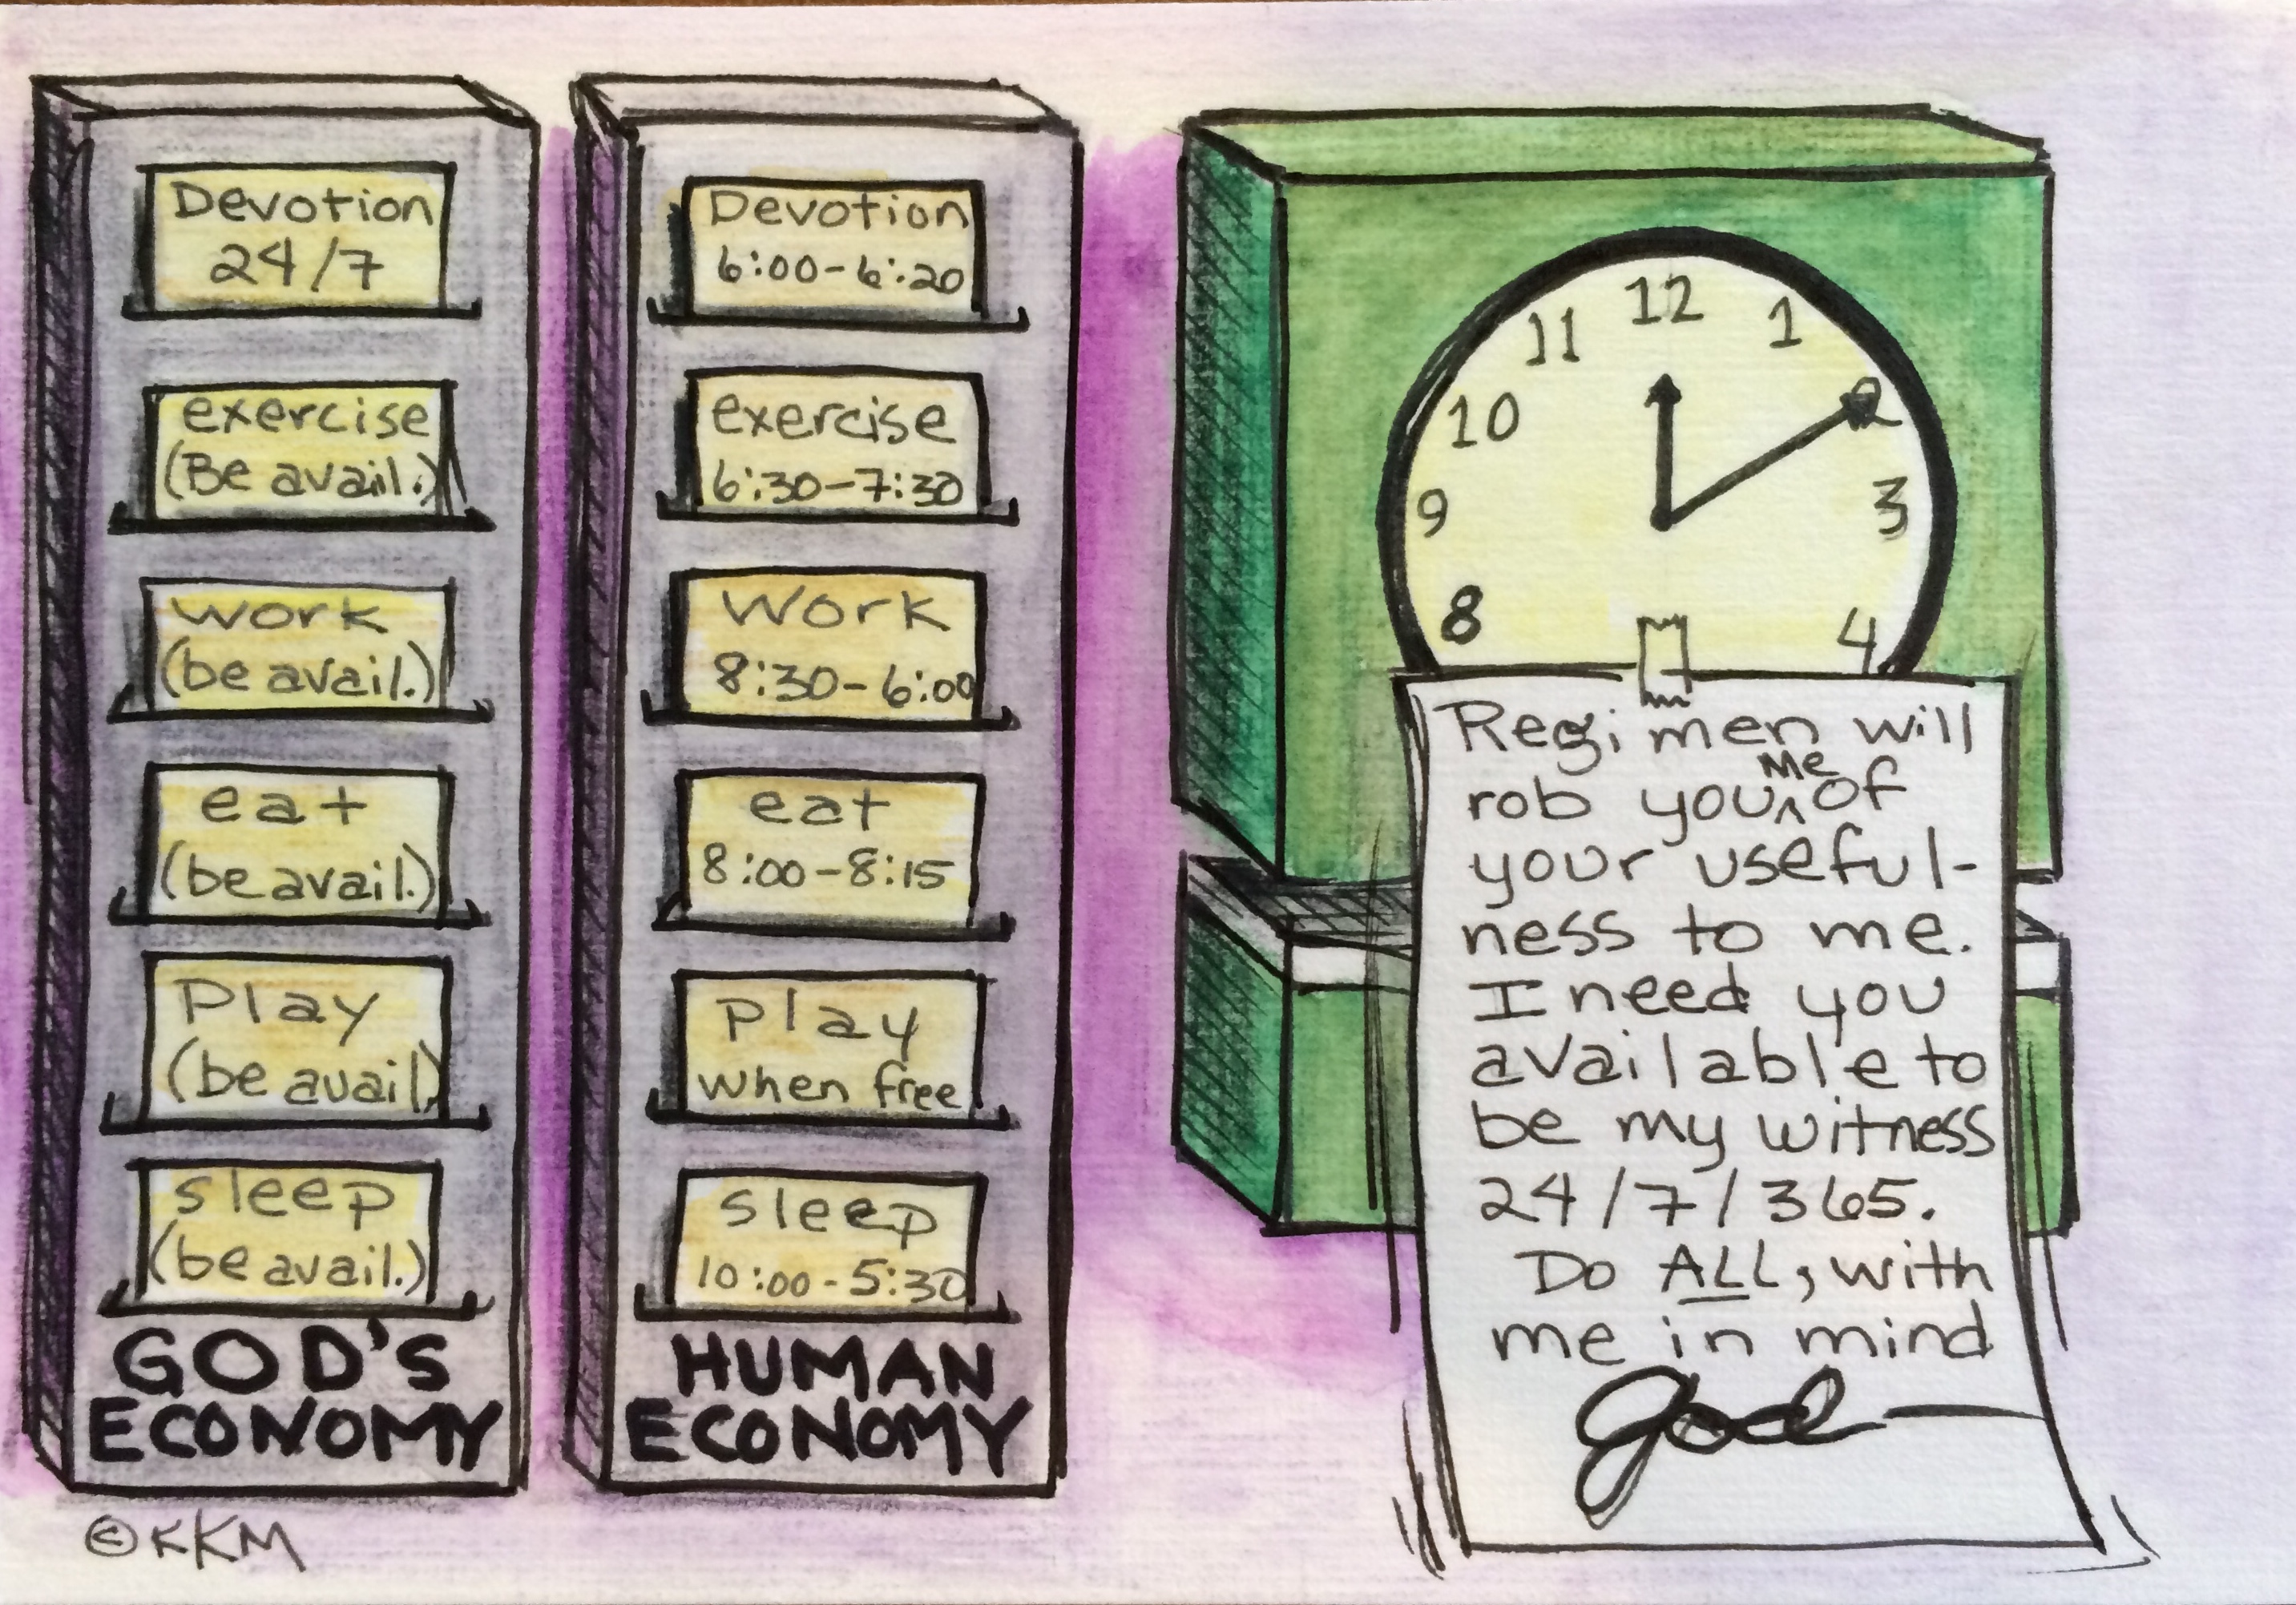 Devotion
24/7
exercise
(Be avail.)
work
(be avail.)
eat
(be avail.)
Play
(be avail)
sleep
(be avail.)
GOD'S
ECONOMY
©KKM
Devotion
6:00-6:20
exercise
6:30-7:30
Work
8:30-6:00
eat
8:00-8:15
play
when free
sleep
10:00-5:30
HUMAN
ECONOMY
12
11
1
10
2
9
3
8
4
Regimen will
Me
rob you^of
your useful-
ness to me.
I need you
available to
be my witness
24/7/365.
Do ALL, with
me in mind
God